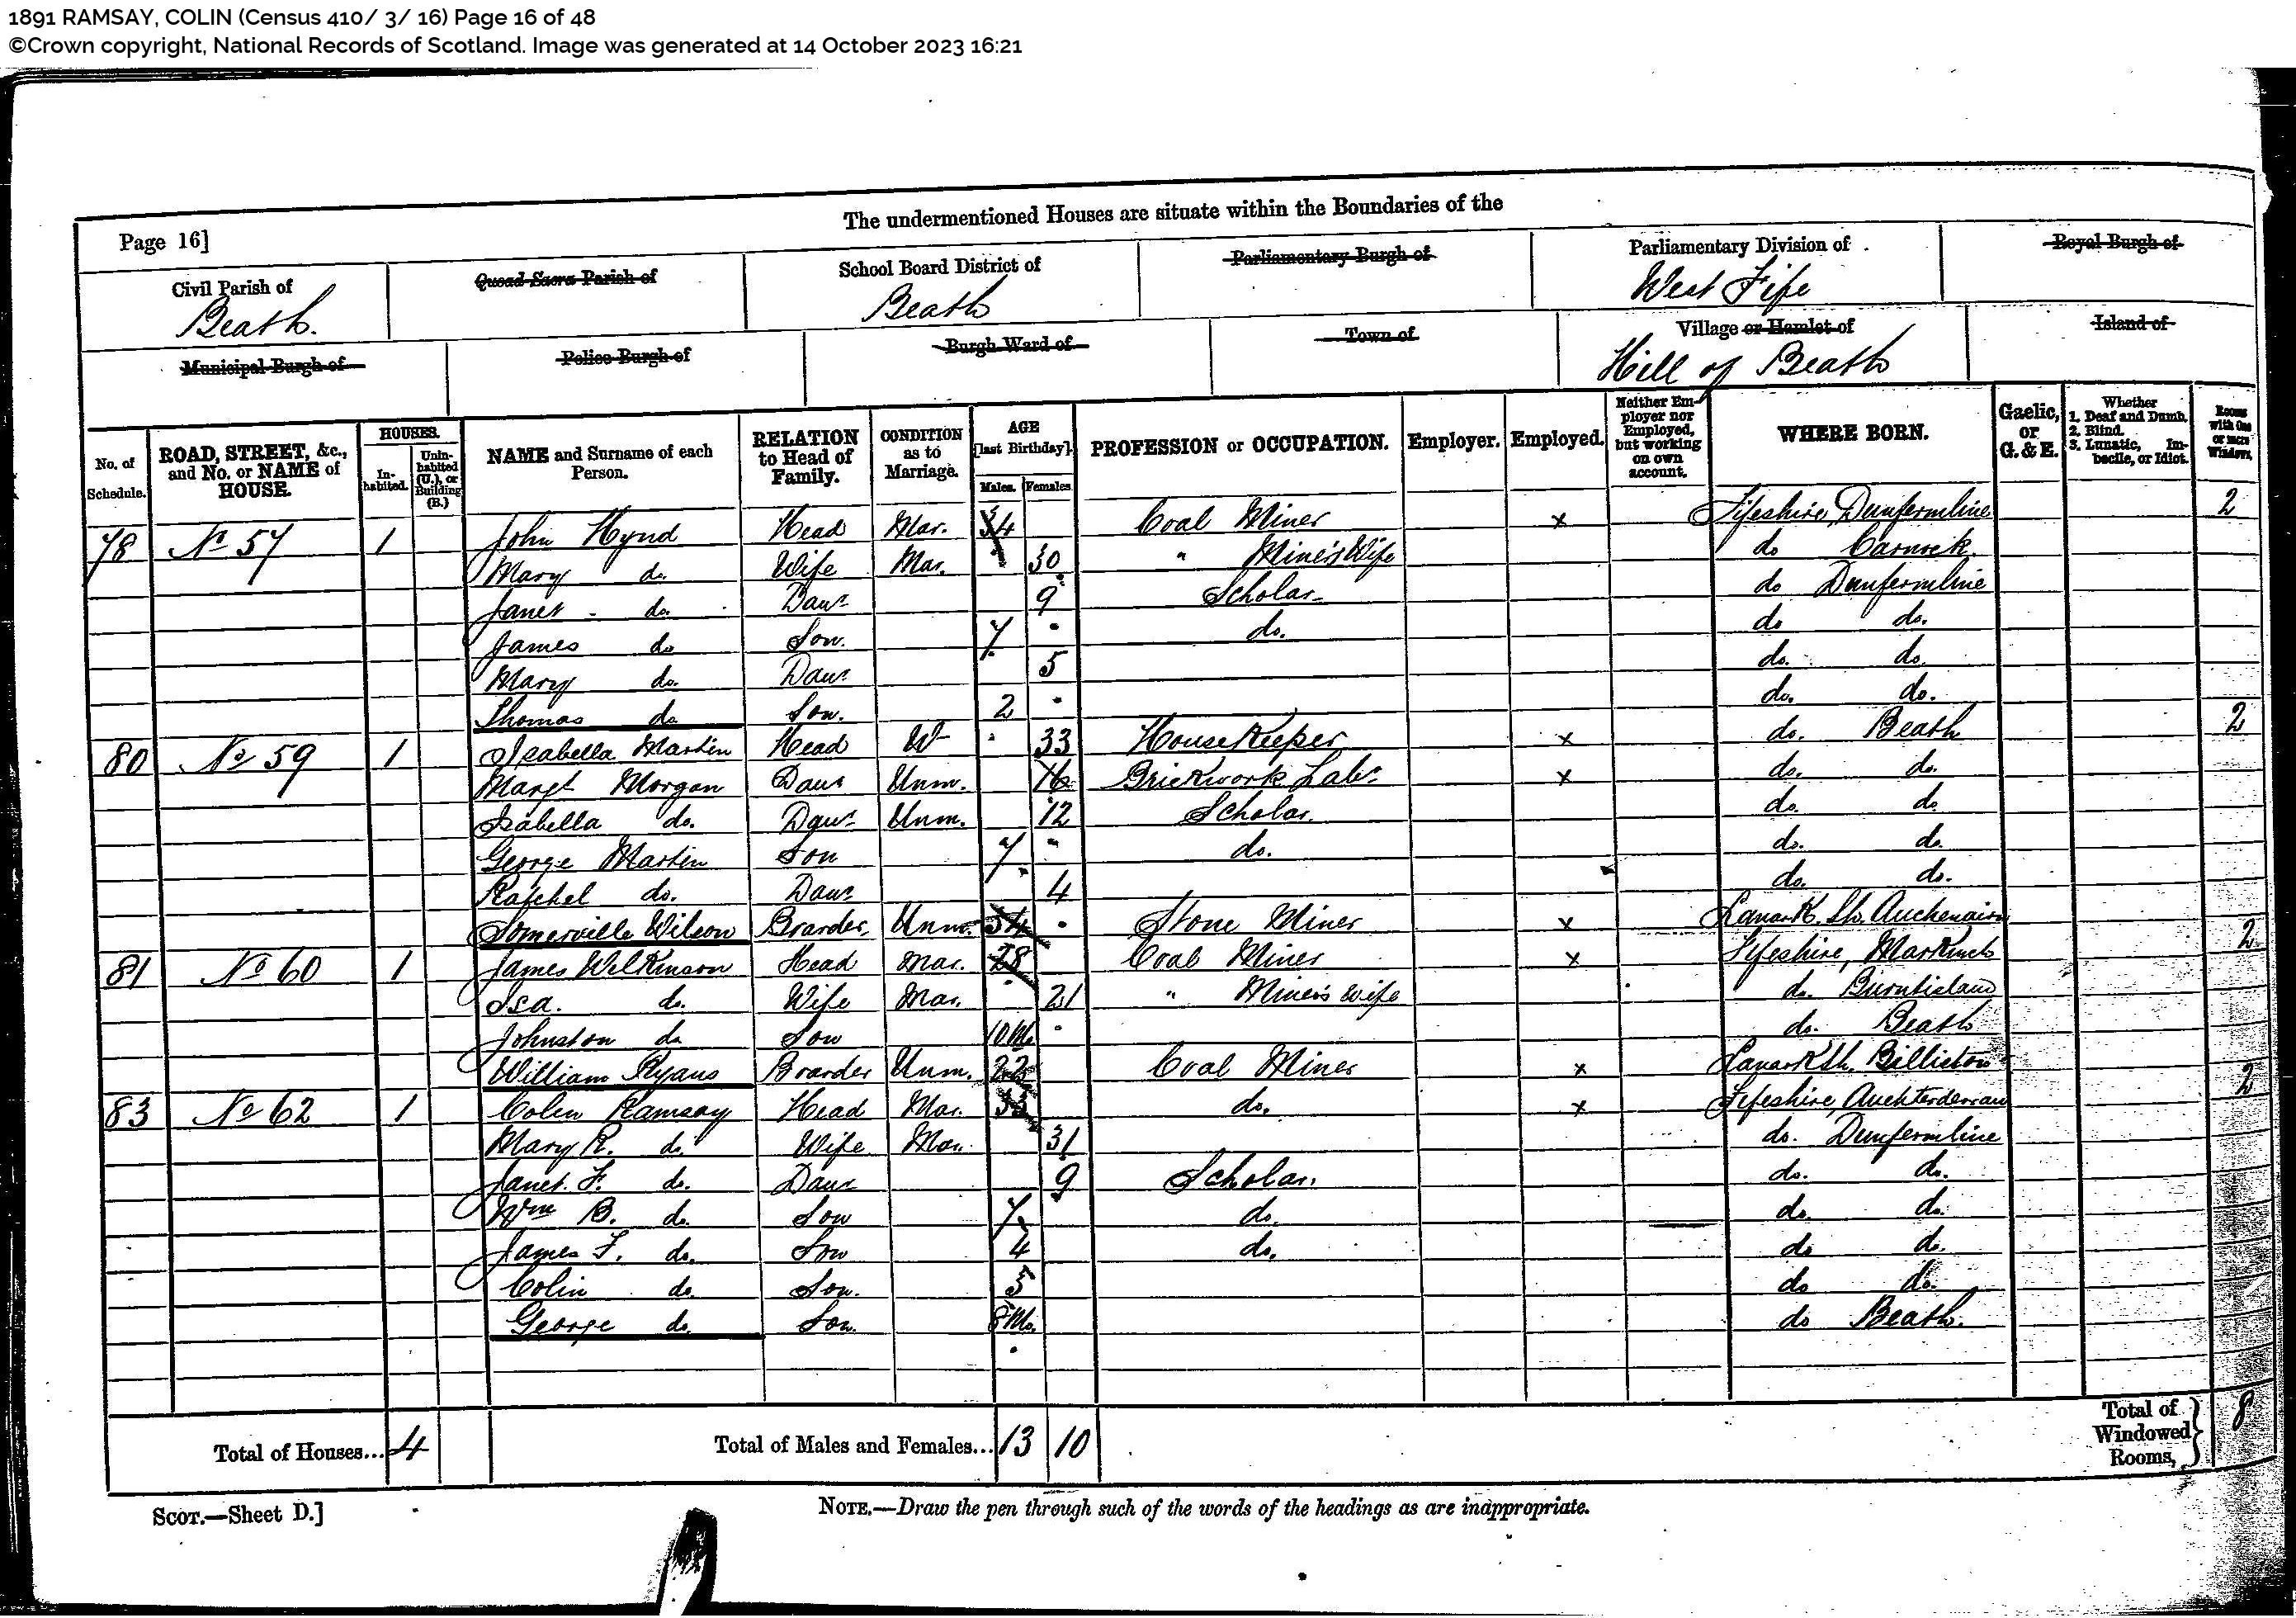 1891 RAMSAY, COLIN (Census 410/ 3/ 16) Page 16 of 48
©Crown copyright, National Records of Scotland. Image was generated at 14 October 2023 16:21
The undermentioned Houses are situate within the Boundaries of the
Page 16]
Civil Parish of Beath. Quoad Sacra Parish of School Board District of Beath Parliamentary Burgh of Parliamentary Division of West Fife Royal Burgh of
Municipal Burgh of Police Burgh of Burgh Ward of Town of Village or Hamlet of Hill of Beath Island of
No. of Schedule. ROAD, STREET, &c., and No. or NAME of HOUSE. HOUSES. Inhabited. Uninhabited (U.), or Building (B.) NAME and Surname of each Person. RELATION to Head of Family. CONDITION as to Marriage. AGE [last Birthday]. Males. Females. PROFESSION or OCCUPATION. Employer. Employed. Neither Employer nor Employed, but working on own account. WHERE BORN. Gaelic, or G. & E. Whether 1. Deaf and Dumb. 2. Blind. 3. Lunatic, Imbecile, or Idiot. Rooms with One or more Windows.
78 No 57 1 John Hynd Head Mar. 34 Coal Miner x Fifeshire, Dunfermline 2
Mary do. Wife Mar. 30 " Miner's Wife do Carnock
Janet do. Daur 9 Scholar do Dunfermline
James do Son. 7 do. do do.
Mary do. Daur 5 do. do
Thomas do Son. 2 do. do.
80 No 59 1 Isabella Martin Head W 33 HouseKeeper x do. Beath 2
Margt Morgan Daur Unm. 16 Brickwork Labr x do. do.
Isabella do. Daur Unm. 12 Scholar. do. do
George Martin Son 7 do. do. do.
Rachel do. Daur 4 do. do.
Somerville Wilson Boarder. Unm. 34 Stone Miner x Lanark Sh. Auchenairn
81 No 60 1 James Wilkinson Head Mar. 28 Coal Miner x Fifeshire, Markinch 2
Isa. do. Wife Mar. 21 " Miner's wife do. Burntisland
Johnston do Son 10 Mo. do. Beath
William Ryans Boarder Unm. 22 Coal Miner x Lanark Sh.
83 No 62 1 Colin Ramsay Head Mar. 33 do. x Fifeshire, Auchterderran 2
Mary R. do. Wife Mar. 31 do. Dunfermline
Janet F. do. Daur 9 Scholar. do. do.
Wm B. do. Son 7 do. do. do.
James F. do. Son 4 do. do do.
Colin do. Son. 3 do do.
George do. Son. 8 Mo. do Beath.
Total of Houses... 4 Total of Males and Females... 13 10 Total of Windowed Rooms, 8
SCOT.—Sheet D.]
NOTE.—Draw the pen through such of the words of the headings as are inappropriate.